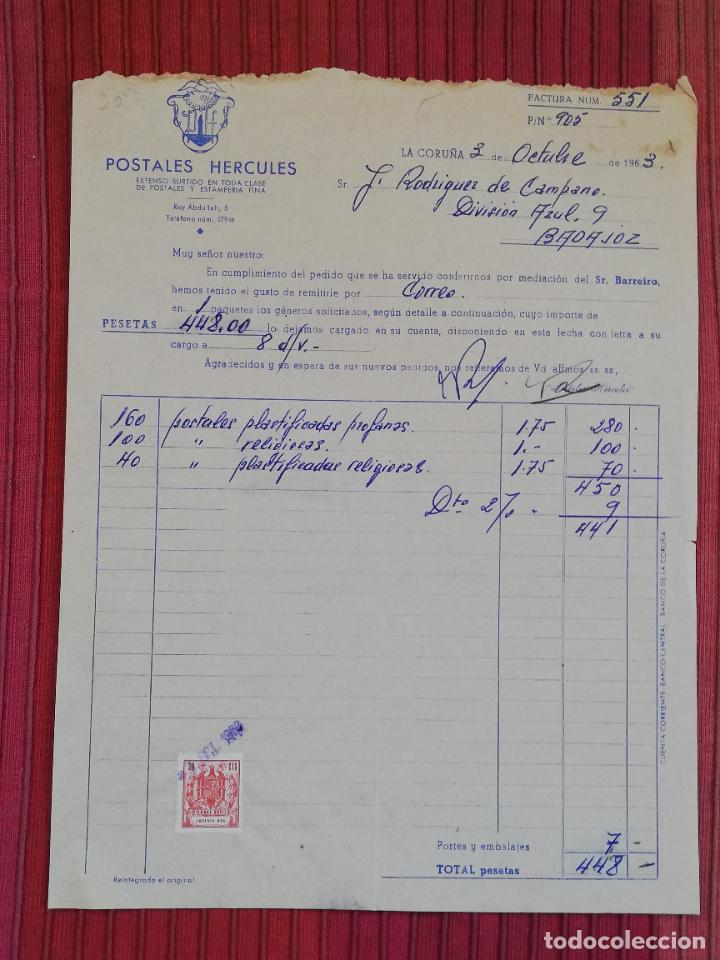 FACTURA NUM. 551
P/Nº 905
POSTALES HERCULES
EXTENSO SURTIDO EN TODA CLASE
DE POSTALES Y ESTAMPERIA FINA
Rey Abdullah, 5
Teléfono núm. 27946
LA CORUÑA 3 de Octubre de 1963.
Sr. J. Rodriguez de Campano.
División Azul. 9
BADAJOZ
Muy señor nuestro:
En cumplimiento del pedido que se ha servido conferirnos por mediación del Sr. Barreiro,
hemos tenido el gusto de remitirle por Correo.
en 1 paquetes los géneros solicitados, según detalle a continuación, cuyo importe de
PESETAS 448.00 lo dejamos cargado en su cuenta, disponiendo en esta fecha con letra a su
cargo a 8 d/v.-
Agradecidos y en espera de sus nuevos pedidos, nos reiteramos de Vd affmos. ss. ss.,
160 postales plastificadas profanas. 1.75 280 -
100 " religiosas. 1.- 100 -
40 " plastificadas religiosas. 1.75 70 -
450
Dto 2% - 9
441
CUENTA CORRIENTE: BANCO CENTRAL - BANCO DE LA CORUÑA
CTS
Portes y embalajes 7 -
TOTAL pesetas 448 -
Reintegrado el original
todocoleccion.net